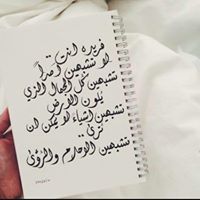 فريده انتِ
لا تشبهين أحداً
تشبهين كل الجمال الذي
يلون الارض
تشبهين اشياء لا يمكن ان
ترىٰ
تشبهين الاحلام والرؤى